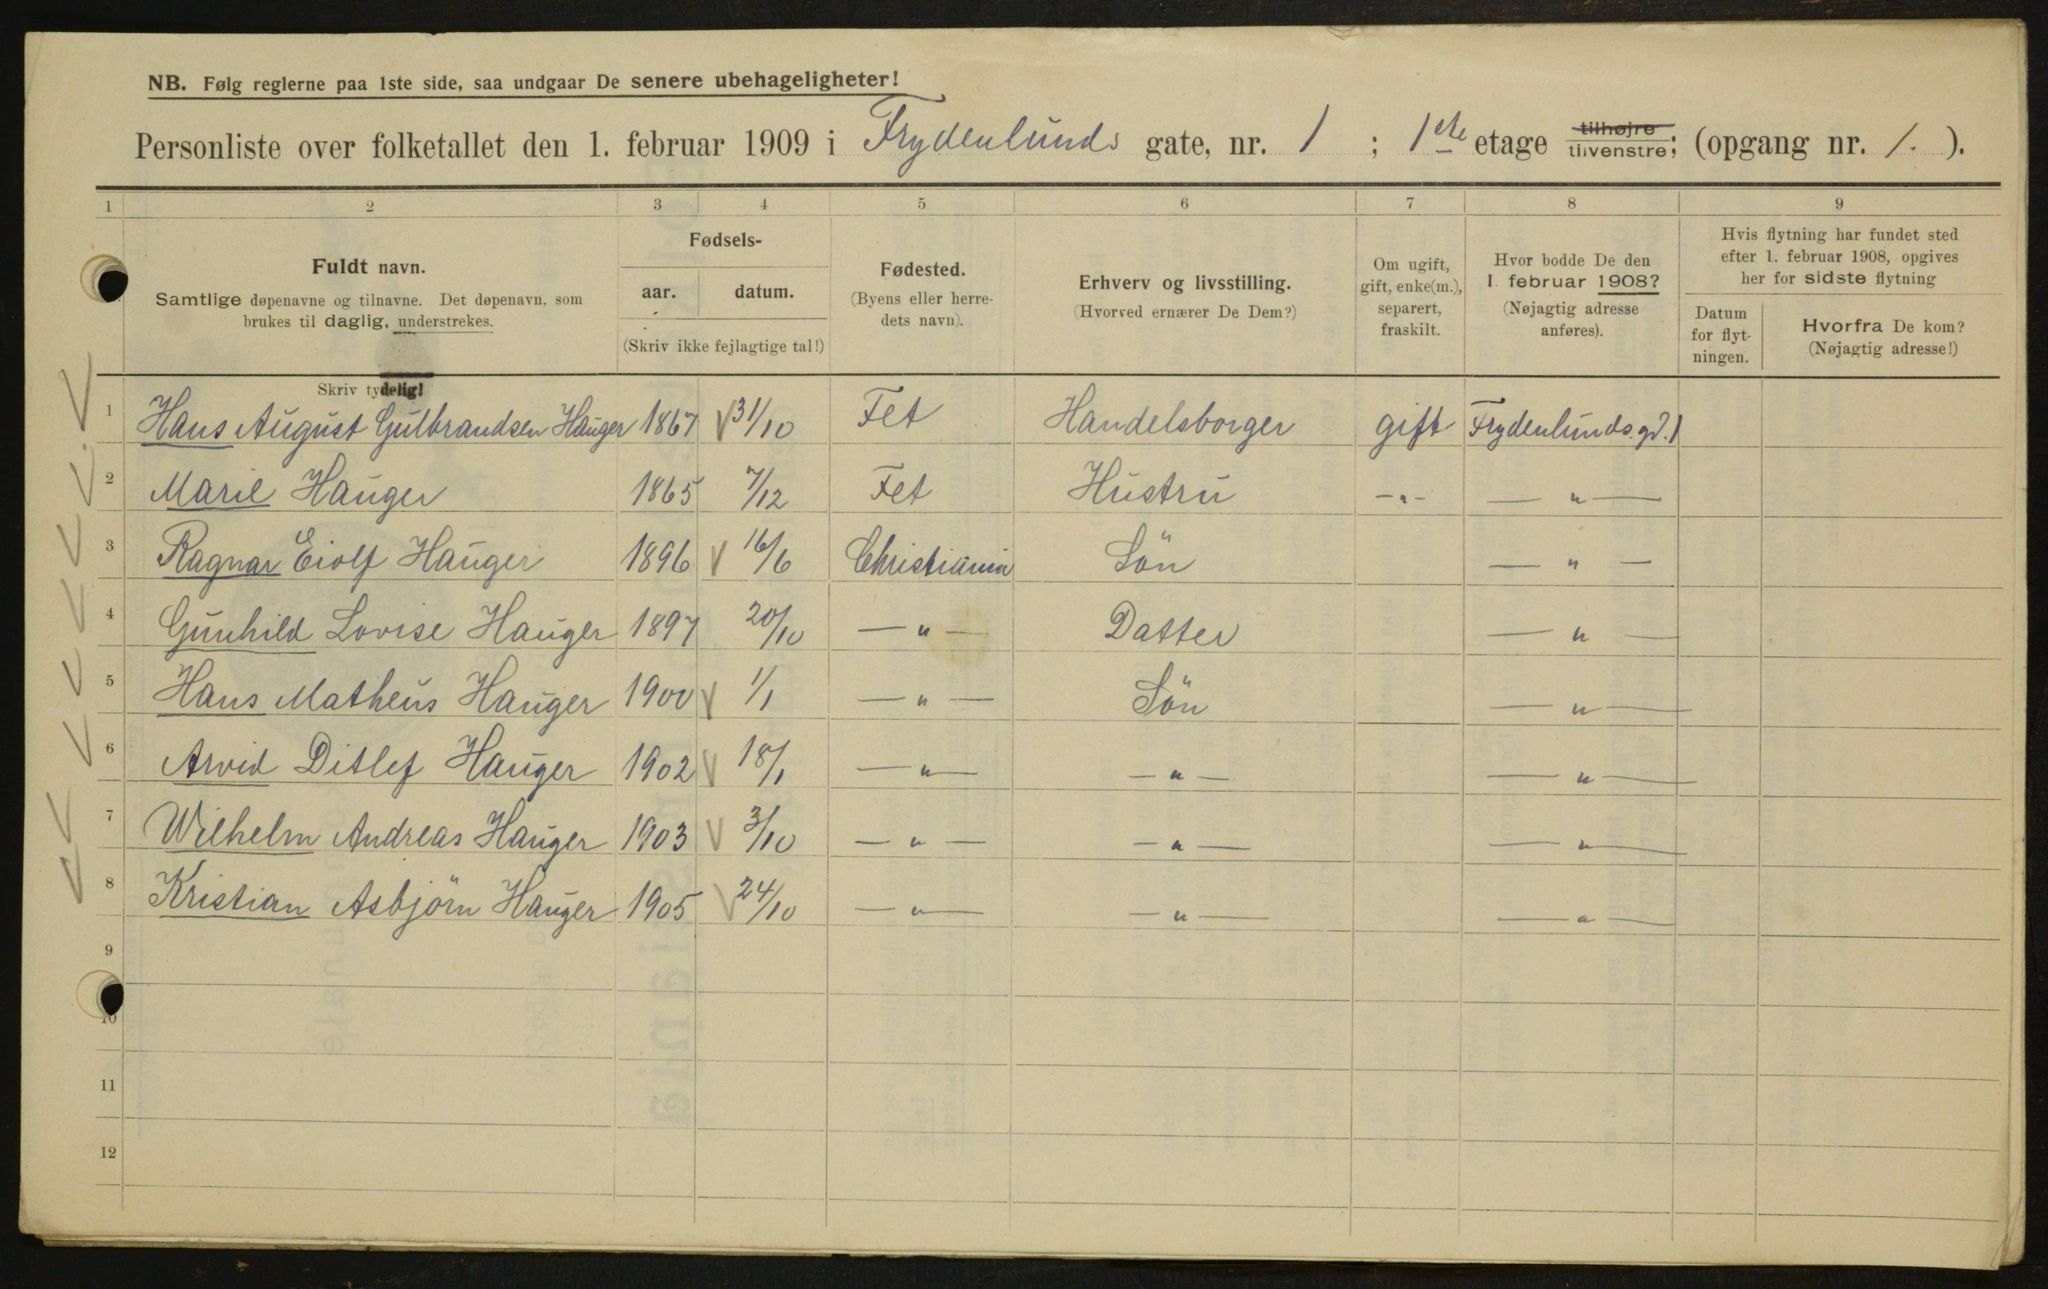 NB. Følg reglerne paa 1ste side, saa undgaar De senere ubehageligheter!
Personliste over folketallet den 1. februar 1909 i Frydenlunds gate, nr. 1 ; 1ste etage tilhøjre tilvenstre; (opgang nr. 1. ).
1 2 3 4 5 6 7 8 9
Fuldt navn.
Samtlige døpenavne og tilnavne. Det døpenavn, som
brukes til daglig, understrekes.
Skriv tydelig!
Fødsels-
aar. datum.
(Skriv ikke fejlagtige tal!)
Fødested.
(Byens eller herre-
dets navn).
Erhverv og livsstilling.
(Hvorved ernærer De Dem?)
Om ugift,
gift, enke(m.),
separert,
fraskilt.
Hvor bodde De den
1. februar 1908?
(Nøjagtig adresse
anføres).
Hvis flytning har fundet sted
efter 1. februar 1908, opgives
her for sidste flytning
Datum
for flyt-
ningen.
Hvorfra De kom?
(Nøjagtig adresse!)
1 Hans August Gulbrandsen Hauger 1867 31/10 Fet Handelsborger gift Frydenlunds.gd.1
2 Marie Hauger 1865 7/12 Fet Hustru —"— —"—
3 Ragnar Eiolf Hauger 1896 16/6 Christiania Sön —"—
4 Gunhild Lovise Hauger 1897 20/10 —"— Datter —"—
5 Hans Matheus Hauger 1900 1/1 —"— Sön —"—
6 Arvid Ditlef Hauger 1902 18/1 —"— —"— —"—
7 Wilhelm Andreas Hauger 1903 3/10 —"— —"— —"—
8 Kristian Asbjörn Hauger 1905 24/10 —"— —"— —"—
9
10
11
12